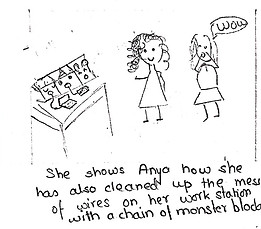 WOW
She shows Anya how she
has also cleaned up the mess
of wires on her work station
with a chain of monster blocks